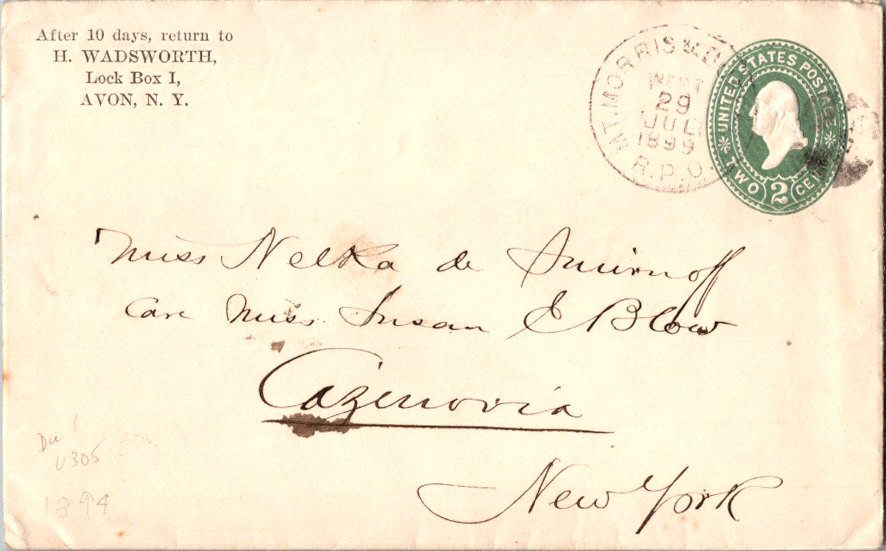 After 10 days, return to
H. WADSWORTH,
Lock Box I,
AVON, N. Y.
MT. MORRIS &
WEST
29
JUL
1899
R.P.O.
UNITED STATES POSTAGE
TWO 2 CENTS
Miss Nelka de Smirnoff
Care Miss Susan E Blow
Cazenovia
New York
U305
1894